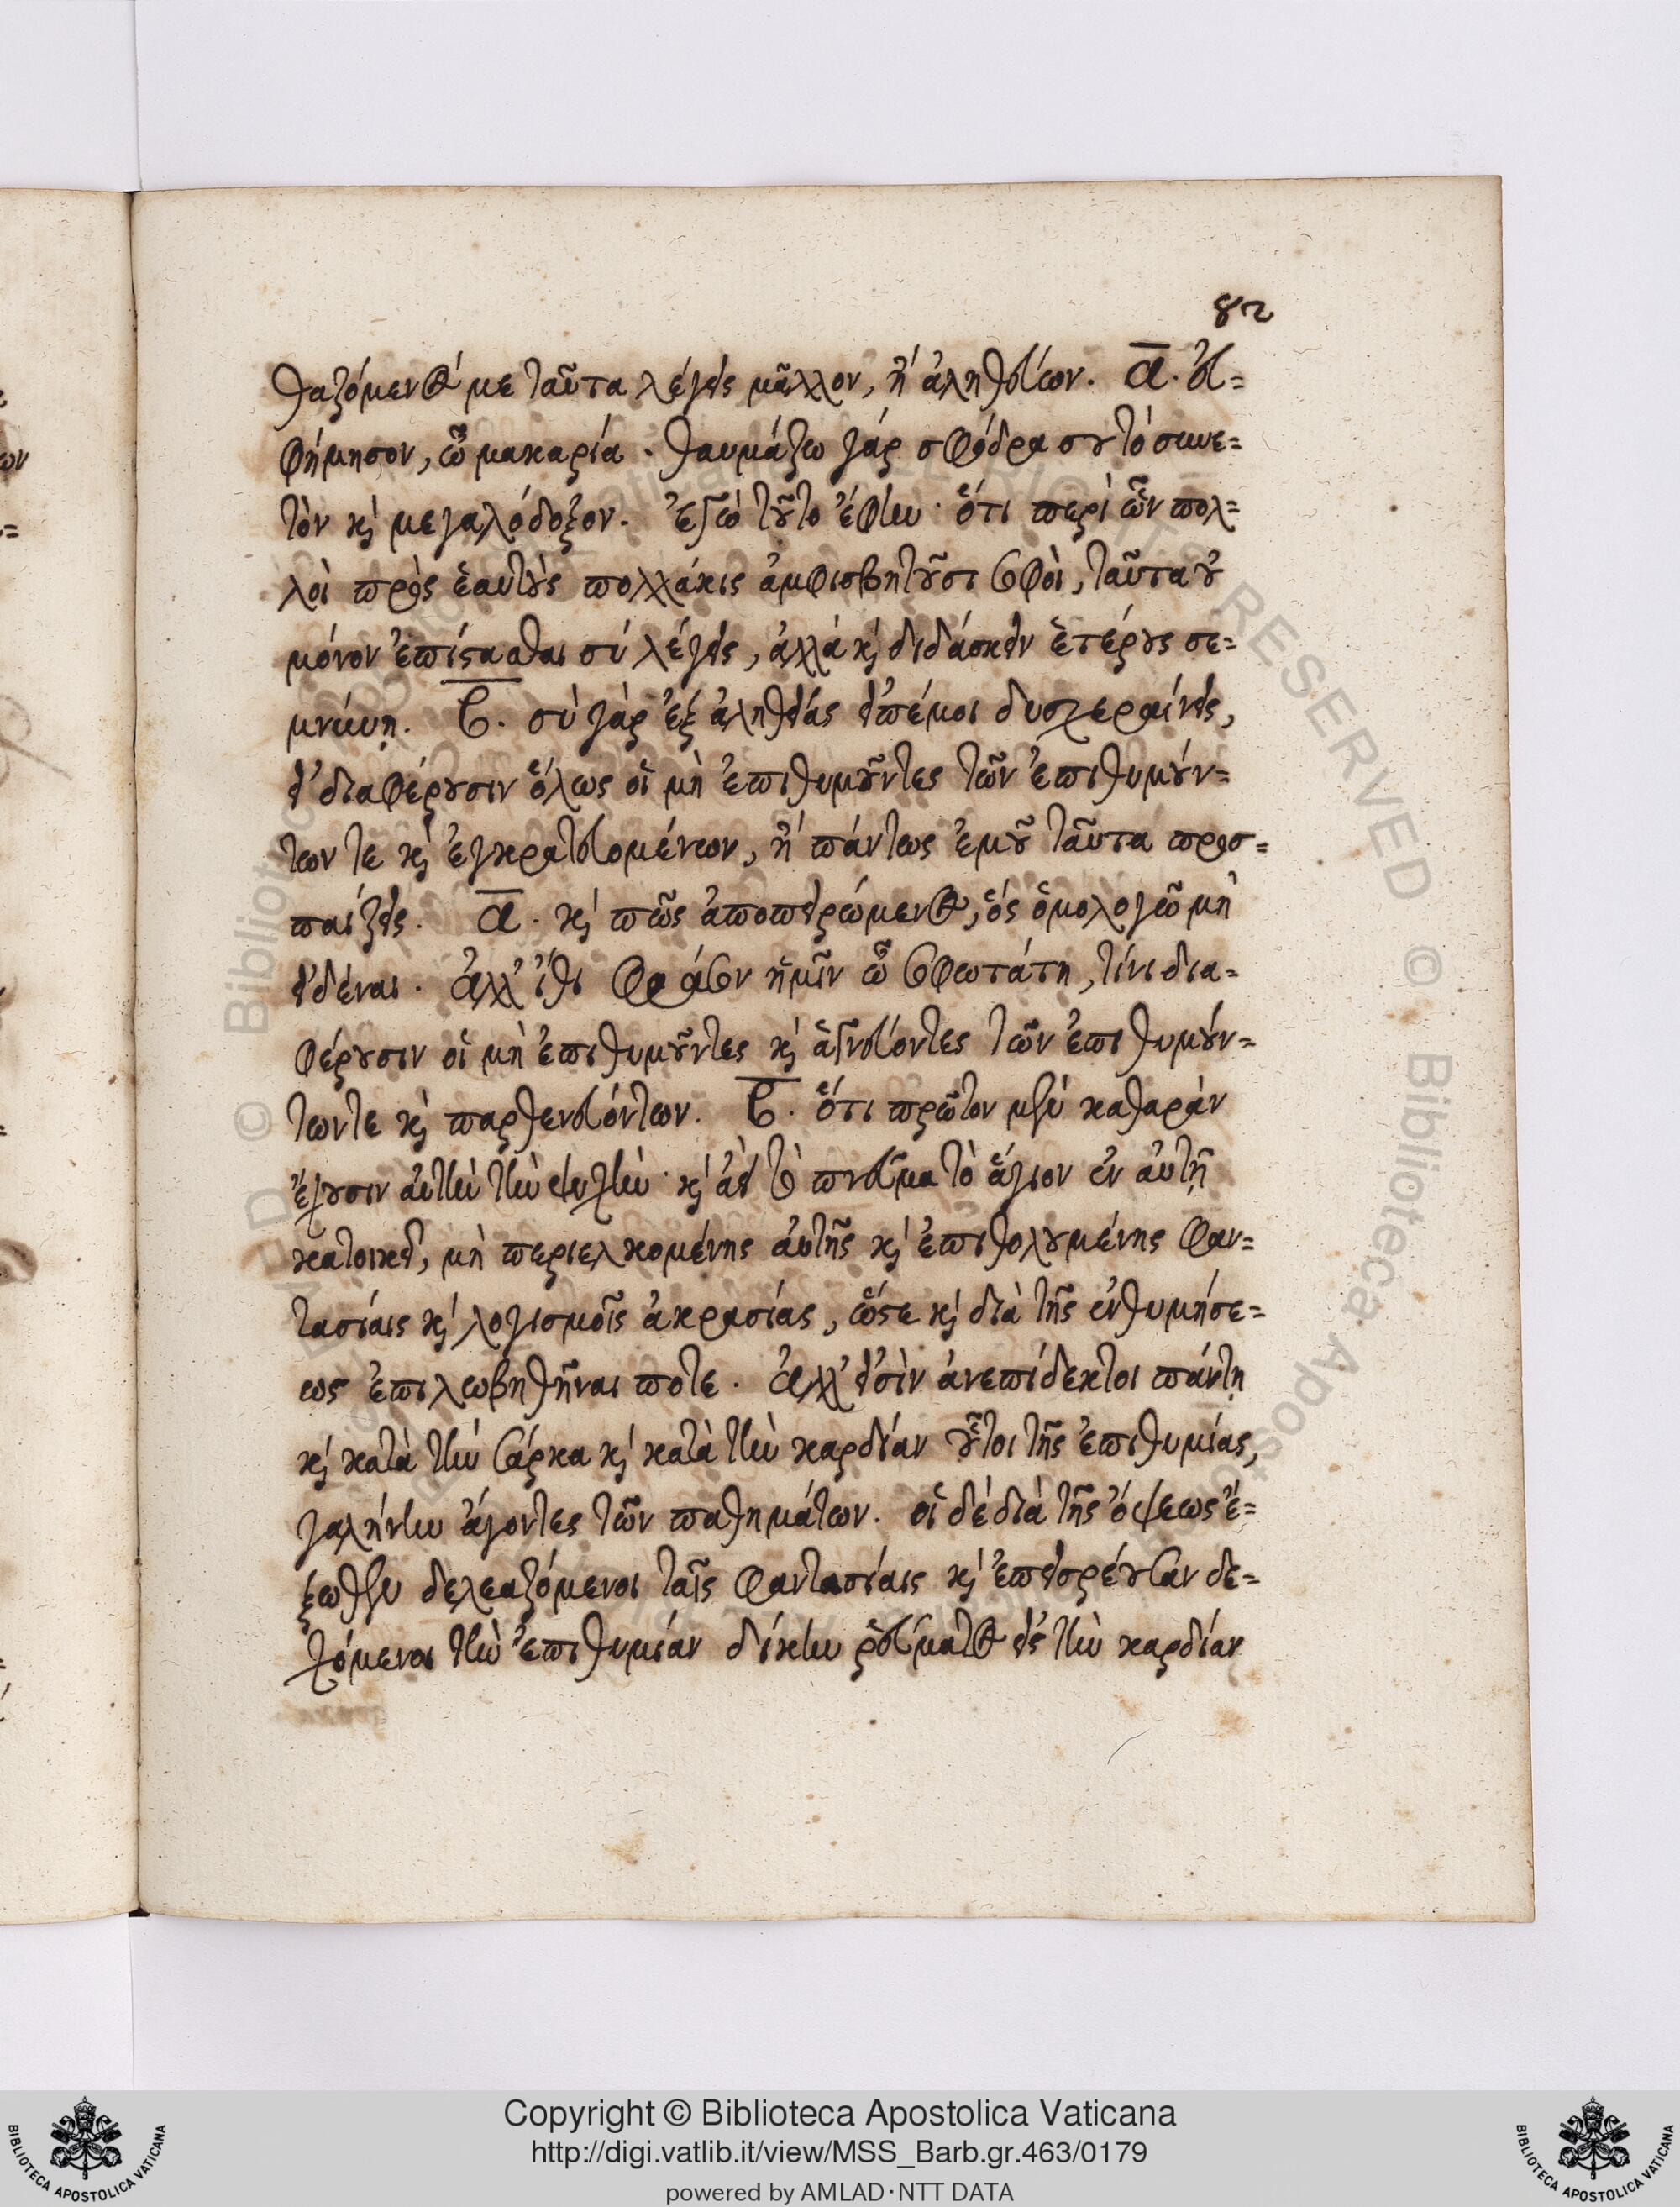 82
θαζόμενός με ταῦτα λέγεις μᾶλλον, ἢ ἀληθεύων. α. εὐ=
φήμησον, ὦ μακαρία. θαυμάζω γάρ σφόδρα σου τὸ συνε=
τὸν καὶ μεγαλόδοξον. ἐγὼ τοῦτο ἔφην· ὅτι περὶ ὧν πολ=
λοὶ πρὸς ἑαυτοὺς πολλάκις ἀμφισβητοῦσι σοφοὶ, ταῦτα οὐ
μόνον ἐπίστασθαι σύ λέγεις, ἀλλὰ καὶ διδάσκειν ἑτέρους σε=
μνύνῃ. β. σὺ γὰρ ἐξ ἀληθείας εἰπέ μοι δυσχεραίνεις,
εἰ διαφέρουσιν ὅλως οἱ μὴ ἐπιθυμοῦντες τῶν ἐπιθυμούν=
των τε καὶ ἐγκρατευομένων, ἢ πάντως ἐμοῦ ταῦτα προσ=
παίζεις. α. καὶ πῶς ἀποπειρώμενος, ὅς ὁμολογῶ μὴ
εἰδέναι. ἀλλ' ἴθι φράσον ἡμῖν ὦ σοφωτάτη, τίνι δια=
φέρουσιν οἱ μὴ ἐπιθυμοῦντες καὶ ἁγνεύοντες τῶν ἐπιθυμούν=
των τε καὶ παρθενευόντων. β. ὅτι πρῶτον μὲν καθαρὰν
ἔχουσιν αὐτὴν τὴν ψυχὴν· καὶ ἀεὶ τὸ πνεῦμα τὸ ἅγιον ἐν αὐτῇ
κατοικεῖ, μὴ περιελκομένης αὐτῆς καὶ ἐπιθολουμένης φαν=
τασίαις καὶ λογισμοῖς ἀκρασίας, ὥστε καὶ διὰ τῆς ἐνθυμήσε=
ως ἐπιλωβηθῆναι ποτε. ἀλλ' εἰσὶν ἀνεπίδεκτοι πάντῃ
καὶ κατὰ τὴν σάρκα καὶ κατὰ τὴν καρδίαν οὗτοι τῆς ἐπιθυμίας,
γαλήνην ἄγοντες τῶν παθημάτων. οἱ δὲ διὰ τῆς ὄψεως ἔ=
ξωθεν δελεαζόμενοι ταῖς φαντασίαις καὶ ἐπεισρέουσαν δε=
χόμενοι τὴν ἐπιθυμίαν δίκην ῥεύματος εἰς τὴν καρδίαν
Copyright © Biblioteca Apostolica Vaticana
http://digi.vatlib.it/view/MSS_Barb.gr.463/0179
powered by AMLAD·NTT DATA